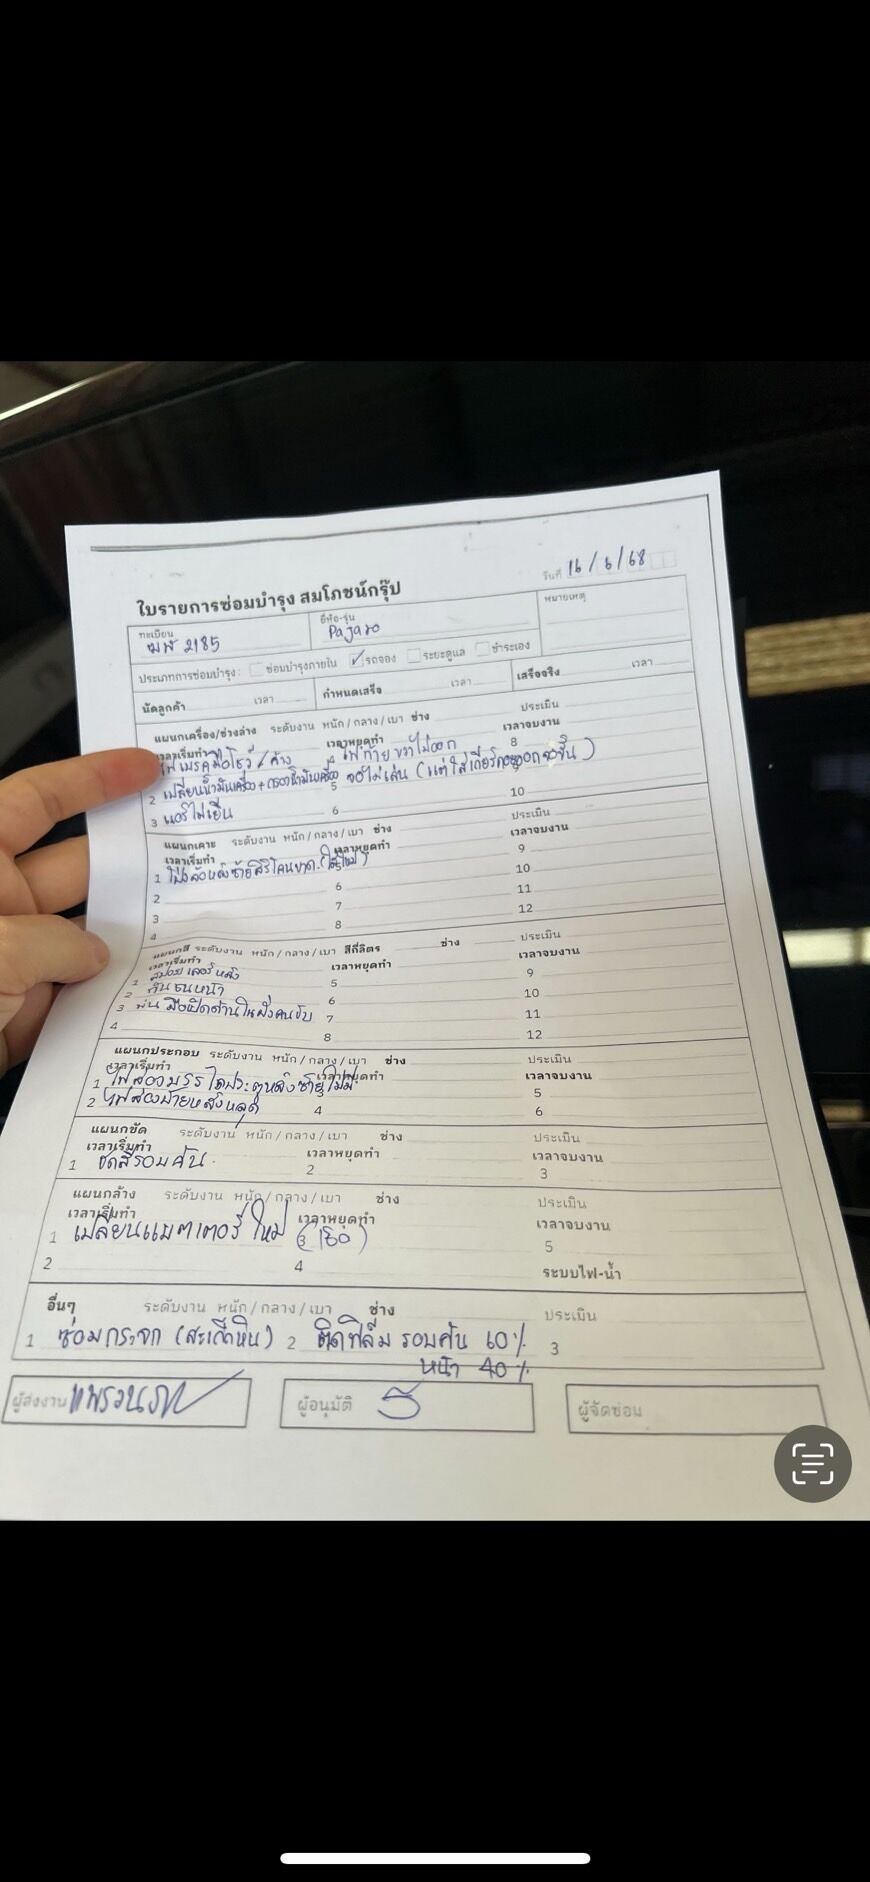 วันที่ 16/6/68
ใบรายการซ่อมบำรุง สมโภชน์กรุ๊ป
ทะเบียน ยี่ห้อ-รุ่น หมายเหตุ
2185 Pajaro
ประเภทการซ่อมบำรุง: ซ่อมบำรุงภายใน ✓ รถจอง ระยะดูแล ชำระเอง
นัดลูกค้า เวลา กำหนดเสร็จ เวลา เสร็จจริง เวลา
แผนกเครื่อง/ช่วงล่าง ระดับงาน หนัก/กลาง/เบา ช่าง ประเมิน
เวลาเริ่มทำ เวลาหยุดทำ เวลาจบงาน
ไฟเบรคมือโชว์/ค้าง 4 ไฟท้ายขวาไม่ออก 8
2 เปลี่ยนน้ำมันเครื่อง + กรองน้ำมันเครื่อง 5 จอไม่เล่น (แต่ใส่เกียร์ถอยออกจอขึ้น)
3 แอร์ไม่เย็น 6 10
แผนกเคาะ ระดับงาน หนัก/กลาง/เบา ช่าง ประเมิน
เวลาเริ่มทำ เวลาหยุดทำ เวลาจบงาน
1 โป่งล้อหลังซ้าย 5 9
2 6 10
3 7 11
4 8 12
แผนกสี ระดับงาน หนัก/กลาง/เบา สีกี่ลิตร ช่าง ประเมิน
เวลาเริ่มทำ เวลาหยุดทำ เวลาจบงาน
1 สปอยเลอร์หลัง 5 9
2 กันชนหน้า 6 10
3 พ่นมือเปิดด้านในฝั่งคนขับ 7 11
4 8 12
แผนกประกอบ ระดับงาน หนัก/กลาง/เบา ช่าง ประเมิน
เวลาเริ่มทำ เวลาหยุดทำ เวลาจบงาน
1 ไฟส่องประตูหลังซ้ายไม่มี 3 5
2 ไฟส่องป้ายหลังหลุด 4 6
แผนกขัด ระดับงาน หนัก/กลาง/เบา ช่าง ประเมิน
เวลาเริ่มทำ เวลาหยุดทำ เวลาจบงาน
1 ขัดสีรอบคัน 2 3
แผนกล้าง ระดับงาน หนัก/กลาง/เบา ช่าง ประเมิน
เวลาเริ่มทำ เวลาหยุดทำ เวลาจบงาน
1 เปลี่ยนแบตเตอรี่ใหม่ 3 5
2 4 ระบบไฟ-น้ำ
อื่นๆ ระดับงาน หนัก/กลาง/เบา ช่าง ประเมิน
1 ซ่อมกระจก (สะเก็ดหิน) 2 ติดฟิล์ม รอบคัน 60% 3
หน้า 40%
ผู้ส่งงาน ผู้อนุมัติ ผู้จัดซ่อม